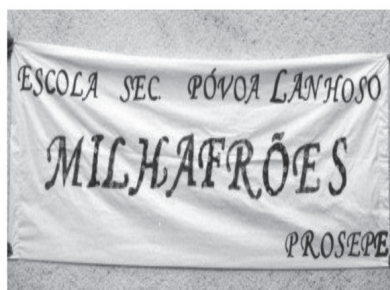 ESCOLA SEC. PÓVOA LANHOSO
MILHAFRÕES
PROSEPE